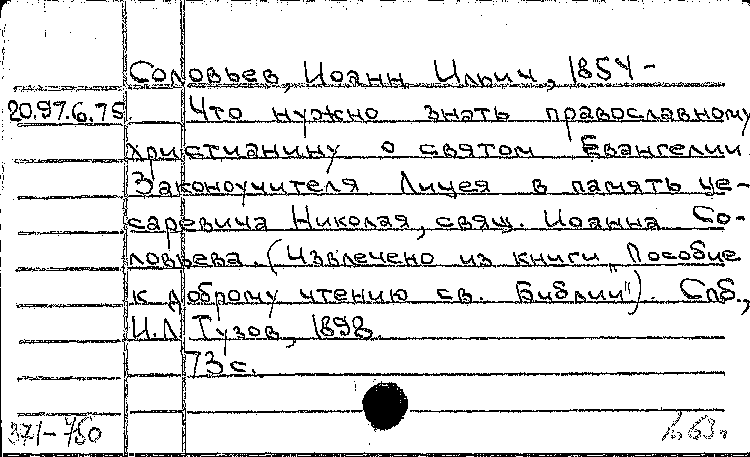 Соловьев, Иоанн Ильич, 1854 -
20.97.6.75 Что нужно знать православному
христианину о святом Евангелии
Законоучителя Лицея в память це-
саревича Николая, свящ. Иоанна Со-
ловьева. (Извлечено из книги „Пособие
к доброму чтению св. Библии"). Спб.,
И.Л. Тузов, 1898.
73 с.
371-750